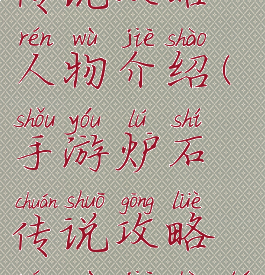 传说攻略
rén wù jiè shào
人物介绍(
shǒu yóu lú shí
手游炉石
chuán shuō gōng lüè
传说攻略